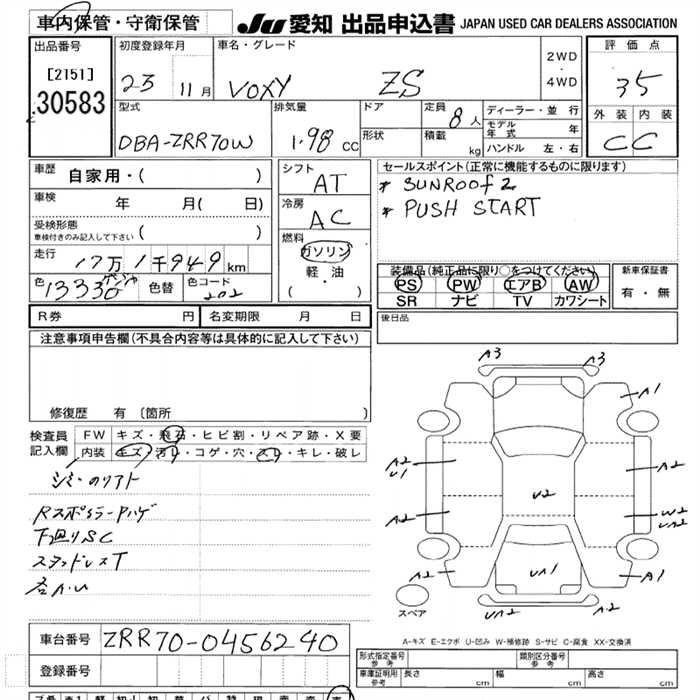 車内保管・守衛保管
JU 愛知 出品申込書 JAPAN USED CAR DEALERS ASSOCIATION
出品番号 初度登録年月 車名・グレード 2WD ・ 4WD 評価点
[2151] 23 11月 VOXY ZS 35
30583
型式 排気量 ドア 定員 8人 ディーラー・並行 外装 内装
DBA-ZRR70W 1.98 CC 形状 積載 kg モデル年式 年 C C
ハンドル 左・右
車歴 自家用・( ) シフト AT セールスポイント(正常に機能するものに限ります)
* SUNROOF 2
車検 年 月( 日) 冷房 AC * PUSH START
受検形態
車検付きのみ記入して下さい ( ) 燃料
走行 17万1千949km ガソリン 装備品(純正品に限り○をつけてください) 新車保証書
軽・油 PS PW エアB AW 有・無
色 13330 色替 色コード 202 ( ・ ) SR ナビ TV カワシート
R券 円 名変期限 月 日 後日品
注意事項申告欄(不具合内容等は具体的に記入して下さい)
修復歴 有 [箇所 ]
検査員 FW キズ・飛石・ヒビ割・リペア跡・X要
記入欄 内装 キズ・汚レ・コゲ・穴・スレ・キレ・破レ
A3 A3
A1
A2 U1 A2
U2
A2 W2 UA2
A2 UA1 A1
UA2 A2
Rスポイラーハゲ
下廻りSC
スタッドレスT
スペア
A-キズ E-エクボ U-凹み W-補修跡 S-サビ C-腐食 XX-交換済
車台番号 ZRR70-0456240
登録番号
形式指定番号 参考 類別区分番号 参考
車庫証明用 参考 長さ cm 幅 cm 高さ cm